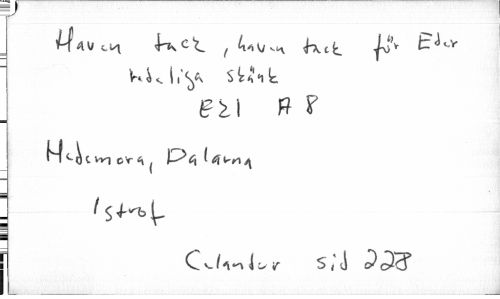 Haven tack, haven tack för Eder
redeliga skänk
E21 A 8
Hedemora, Dalarna
1 strof
Celander sid 228